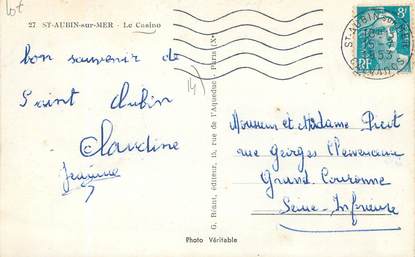 lot
27 ST-AUBIN-sur-MER - Le Casino
bon souvenir de
Saint Aubin
Claudine
Jeannine
14)
G. RÉANT, éditeur, 15, rue de l'Aqueduc - Paris (Xe)
Photo Véritable
ST-AUBIN SUR MER
CALVADOS
8F
RF
Monsieur et Madame Picot
rue Georges Clemenceau
Grand Couronne
Seine-Inférieure